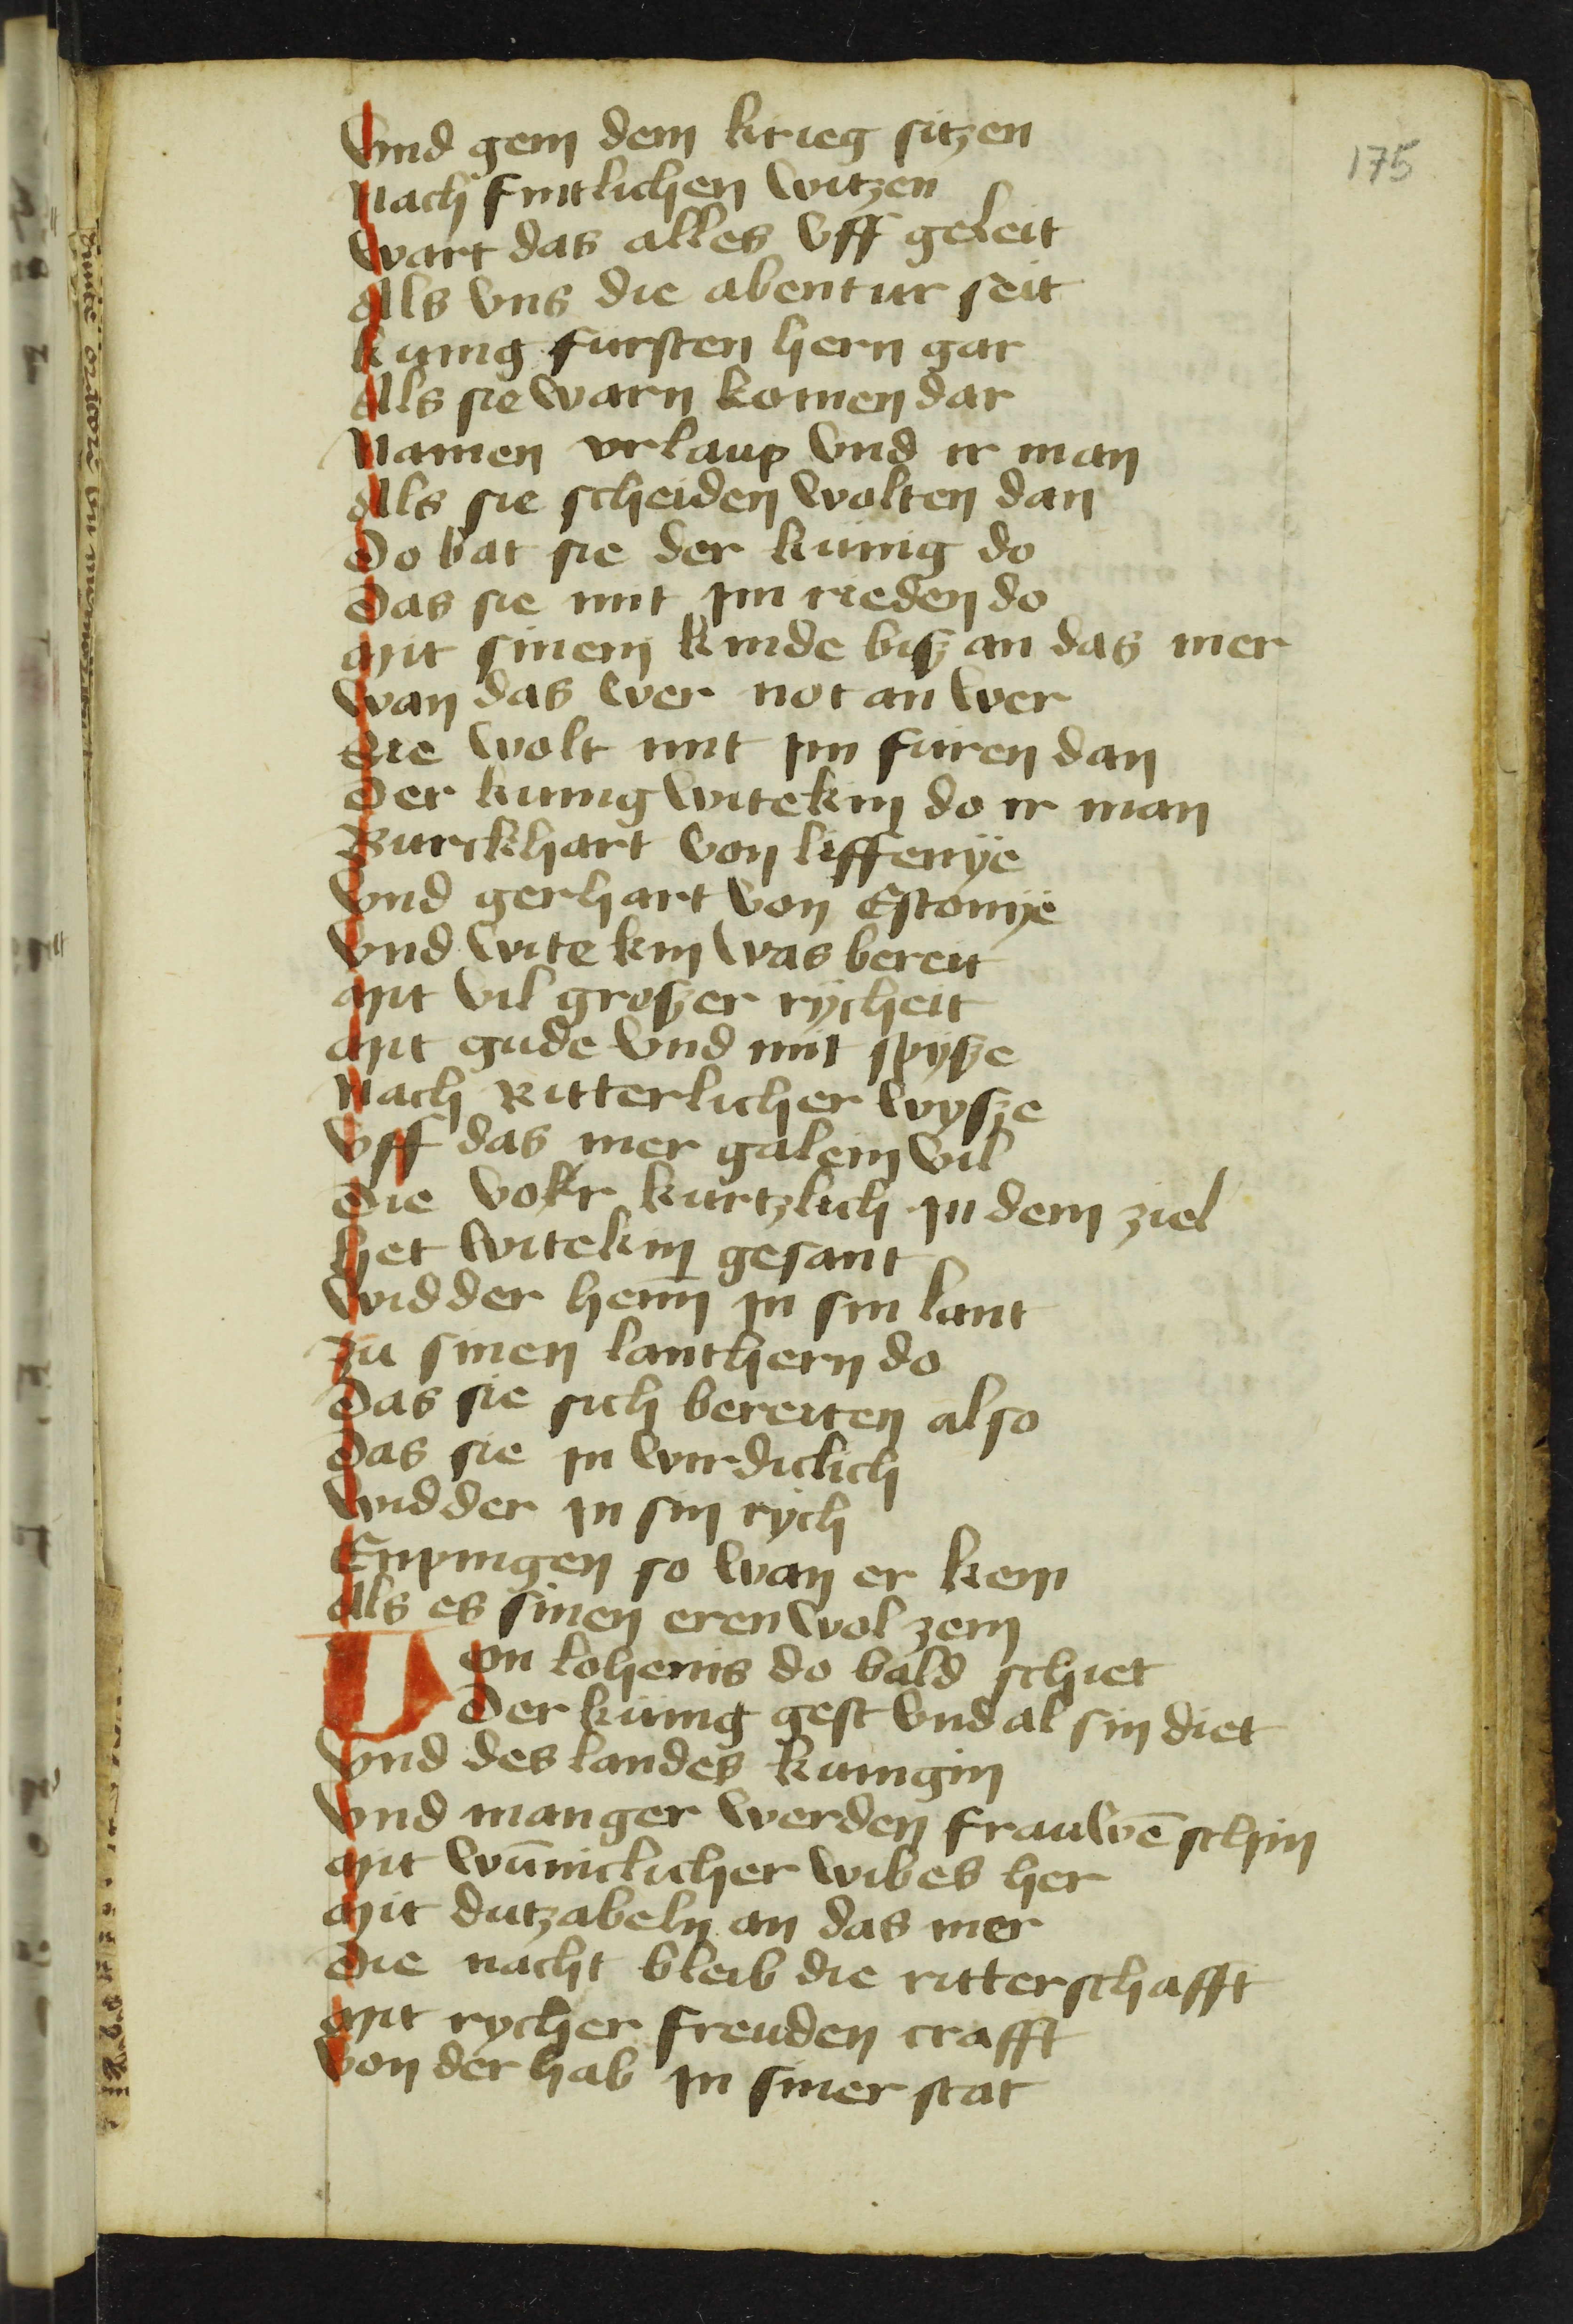 175
Vnd gein dem krieg sitzen
Nach frutlichen witzen
Wart das alles vff geleit
Als vns die abentur seit
Kunig fursten hern gar
Als sie warn komen dar
Namen vrlaup vnd ir man
Als sie scheiden wolten dan
Do bat sie der kunig do
Das sie mit im rieden do
Mit sinem kinde bisz an das mer
Wan das wer not an wer
Die wolt mit im furen dan
Der kunig witekin do ir man
Burckhart von liffenÿe
Vnd gerhart von Estonÿe
Vnd witekin was bereit
Mit vil groszer rÿcheit
Mit gude vnd mit spÿsze
Nach Ritterlicher wysze
Vff das mer galein vil
Die vokr kurtzlich in dem ziel
Het witekin gesant
Widder hein in sin lant
Zu sinen lanthern do
Das sie sich bereiten also
Das sie in wirdiclich
Widder in sin rÿch
Enpingen so wan er kem
Als es sinen eren wol zem
Von lohenis do bald schiet
Der kunig gest vnd al sin diet
Vnd des landes kunigin
Vnd manger werden frauwē schin
Mit wūniclicher wibes her
Mit dutzabeln an das mer
Die nacht bleib die ritterschafft
Mit rycher freuden crafft
Von der hab in siner stat